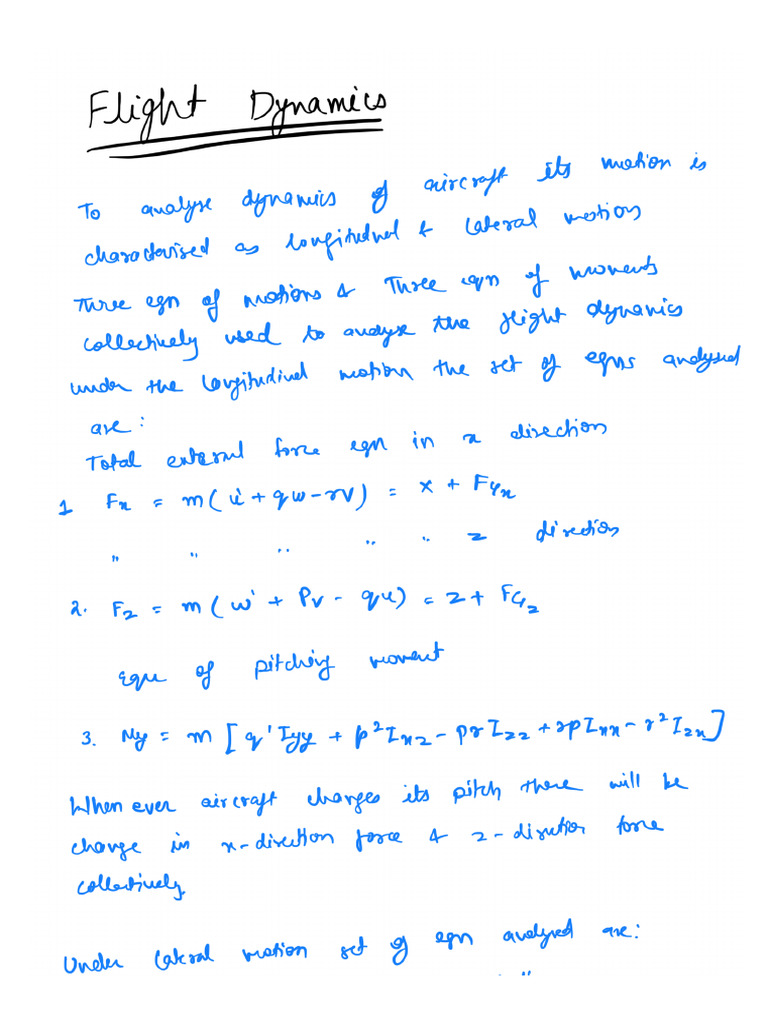 Flight Dynamics
To analyse dynamics of aircraft its motion is
characterised as longitudnal & lateral motions
Three eqn of motions & Three eqn of moments
collectively used to analyse the flight dynamics
under the longitudinal motion the set of eqns analysed
are:
Total external force eqn in x direction
1 Fx = m(u̇ + qw - rv) = X + FGx
" " " " " z direction
2. Fz = m(ẇ + Pv - qu) = Z + FGz
Eqn of pitching moment
3. My = m [q̇ Iyy + p²Ixz - prIzz + rpIxx - r²Izx]
When ever aircraft changes its pitch there will be
change in x-direction force & z-direction force
collectively.
Under lateral motion set of eqn analysed are:
"